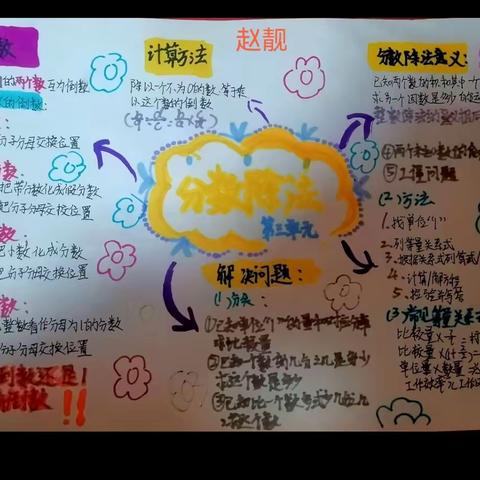 赵靓
数
的两个数互为倒数
的倒数:
分子分母交换位置
数:
把带分数化成假分数
把分子分母交换位置
数:
把小数化成分数
把分子分母交换位置
数:
整数看作分母为1的分数
分子分母交换位置
倒数还是1
倒数!!
计算方法
除以一个不为0的数,等于乘
以这个数的倒数
分数除法
第三单元
解决问题:
(1)分类
②已知一个数的几分之几是多少
求这个数是多少
③已知比一个数多或少几分几
求这个数
分数除法意义:
已知两个数的积和其中一个
求另一个因数是多少
⑤工程问题
(2)方法
1.找单位"1"
2.列等量关系式
3.根据关系式列算式
4.计算/解方程
5.检验并答
(3)常见等量关系式
比较量×
比较量×(1±
单位量×数量=
工作效率×工作